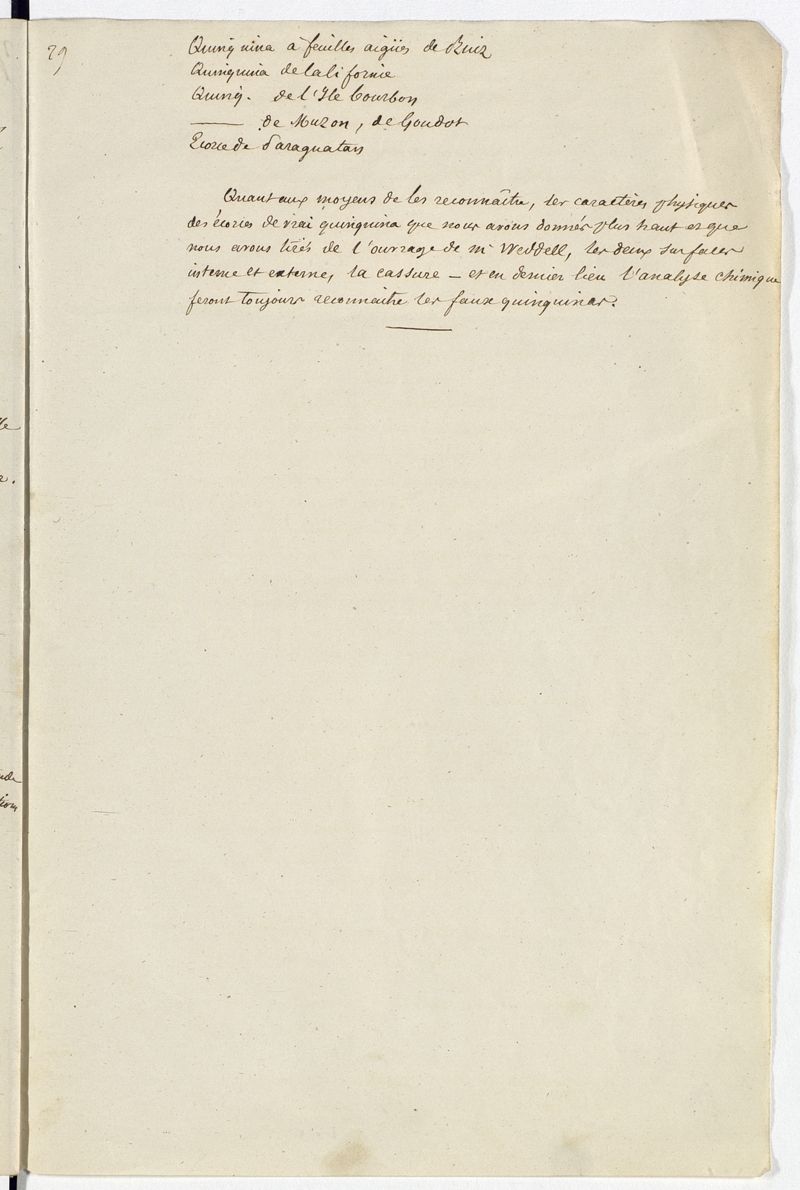 29
Quinquina à feuilles aigües de Ruiz
Quinquina de Californie
Quinq. de l'Ile Bourbon
—— de Muzon, de Goudot
Ecorce de Paraguatan
Quant aux moyens de les reconnaître, les caractères physiques
des écorces de vrai quinquina que nous avons donnés plus haut et que
nous avons tirés de l'ouvrage de Mr Weddell, les deux surfaces
interne et externe, la cassure — et en dernier lieu l'analyse chimique
feront toujours reconnaître les faux quinquinas.